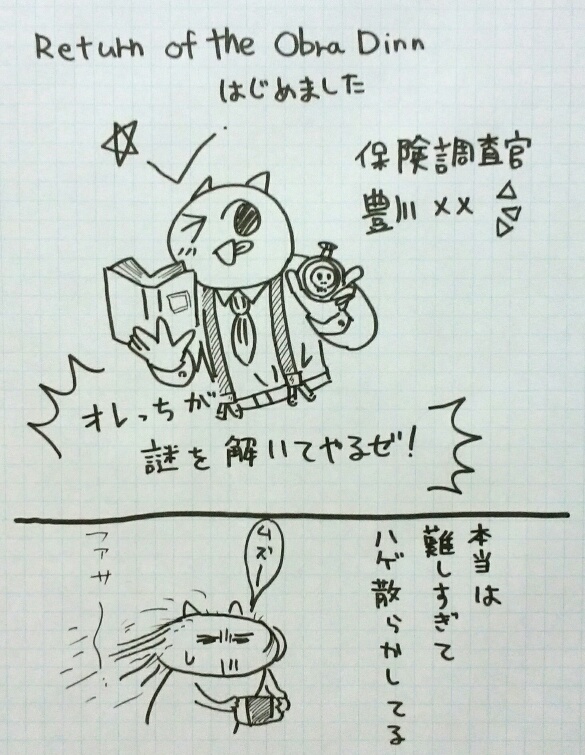 Return of the Obra Dinn
はじめました
保険調査官
豊川××
オレっちが
謎を解いてやるぜ!
本当は
難しすぎて
ハゲ散らかしてる
ムズー
ファサー